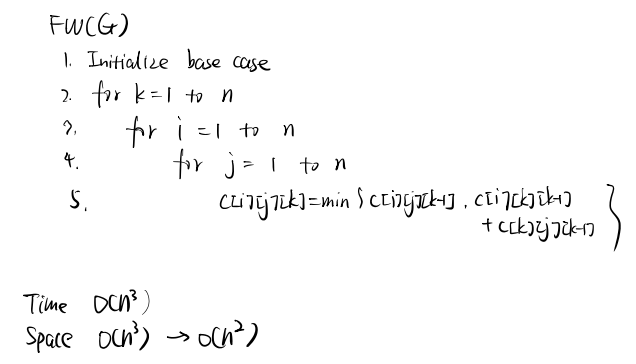 FW(G)
1. Initialize base case
2. for k=1 to n
3. for i=1 to n
4. for j=1 to n
5. c[i][j][k]=min { c[i][j][k-1], c[i][k][k-1]
+ c[k][j][k-1] }
Time O(n³)
Space O(n³) → O(n²)